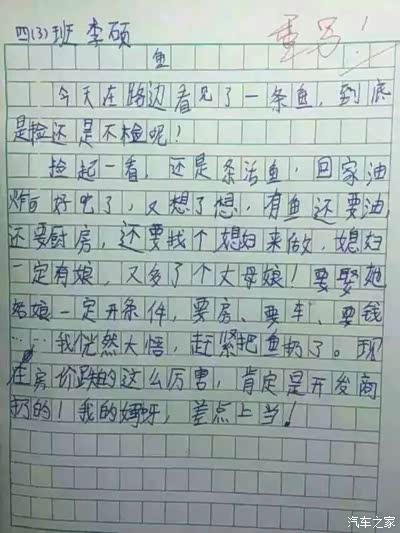 四(3)班 李硕
重写!
鱼
今天在路边看见了一条鱼,到底
是捡还是不捡呢!
捡起一看,还是条活鱼,回家油
炸可好吃了,又想了想,有鱼还要油,
还要厨房,还要找个媳妇来做,媳妇
一定有娘,又多了个丈母娘!要娶她
姑娘一定开条件,要房、要车、要钱
……我恍然大悟,赶紧把鱼扔了。现
在房价跌的这么厉害,肯定是开发商
扔的!我的妈呀,差点上当!
汽车之家